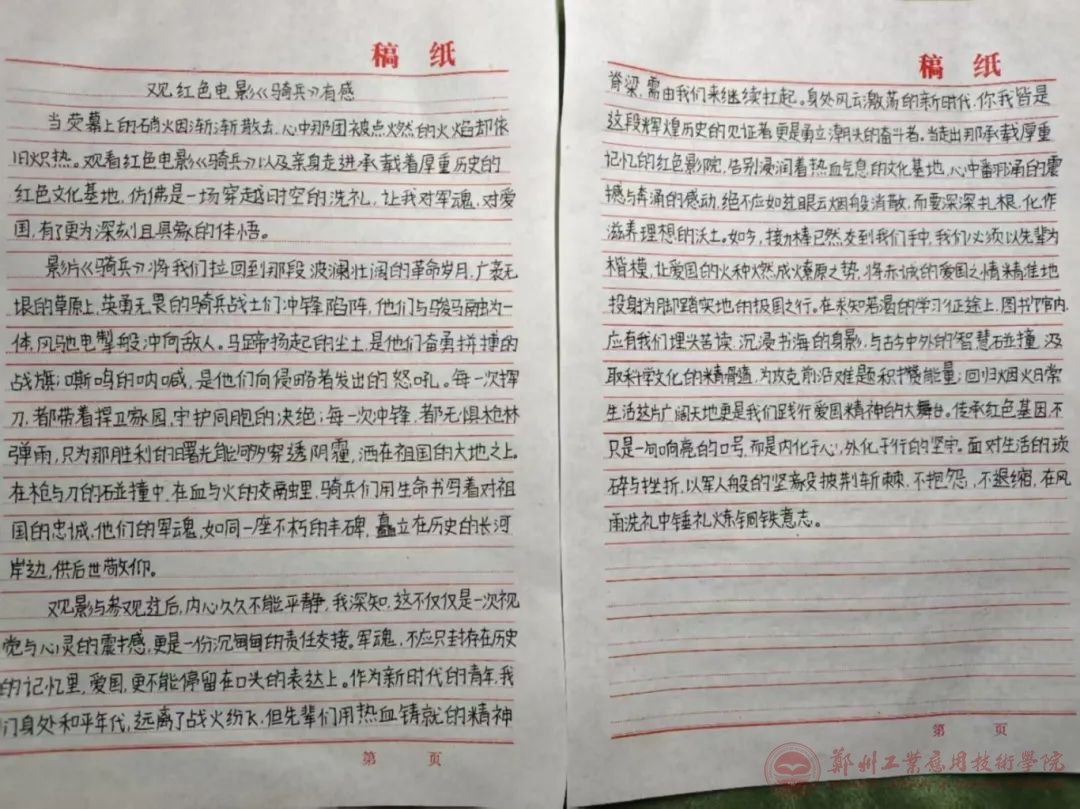 稿 纸
观红色电影《骑兵》有感
当荧幕上的硝火因渐渐散去,心中那团被点燃的火焰却依
旧炽热。观看红色电影《骑兵》以及亲身走进承载着厚重历史的
红色文化基地,仿佛是一场穿越时空的洗礼,让我对军魂,对爱
国,有了更为深刻且具象的体悟。
影片《骑兵》将我们拉回到那段波澜壮阔的革命岁月,广袤无
垠的草原上,英勇无畏的骑兵战士们冲锋陷阵,他们与骏马融为一
体,风驰电掣般冲向敌人。马蹄扬起的尘土,是他们奋勇拼搏的
战旗;嘶鸣的呐喊,是他们向侵略者发出的怒吼。每一次挥
刀,都带着捍卫家园,守护同胞的决绝;每一次冲锋,都无惧枪林
弹雨,只为那胜利的曙光能够穿透阴霾,洒在祖国的大地之上。
在枪与刀的碰撞中,在血与火的交融里,骑兵们用生命书写着对祖
国的忠诚,他们的军魂,如同一座不朽的丰碑,矗立在历史的长河
岸边,供后世敬仰。
观影与参观过后,内心久久不能平静,我深知,这不仅仅是一次视
觉与心灵的震撼,更是一份沉甸甸的责任交接。军魂,不应只封存在历史
的记忆里,爱国,更不能停留在口头的表达上。作为新时代的青年,我
们身处和平年代,远离了战火纷飞,但先辈们用热血铸就的精神
第 页
稿 纸
脊梁,需由我们来继续扛起。身处风云激荡的新时代,你我皆是
这段辉煌历史的见证者,更是勇立潮头的奋斗者。当走出那承载厚重
记忆的红色影院,告别浸润着热血气息的文化基地,心中翻涌的震
撼与奔涌的感动,绝不应如过眼云烟般消散,而要深深扎根,化作
滋养理想的沃土。如今,接力棒已然交到我们手中,我们必须以先辈为
楷模,让爱国的火种燃成燎原之势,将赤诚的爱国之情精准地
投身为脚踏实地的报国之行。在求知若渴的学习征途上,图书馆内,
应有我们埋头苦读,沉浸书海的身影,与古今中外的智慧碰撞,汲
取科学文化的精髓,为攻克前沿难题积攒能量;回归烟火日常
生活这片广阔天地更是我们践行爱国精神的大舞台。传承红色基因,不
只是一句响亮的口号,而是内化于心,外化于行的坚守。面对生活的琐
碎与挫折,以军人般的坚毅披荆斩棘,不抱怨,不退缩,在风
雨洗礼中锤礼炼钢铁意志。
第 页
鄭州工業應用技術學院